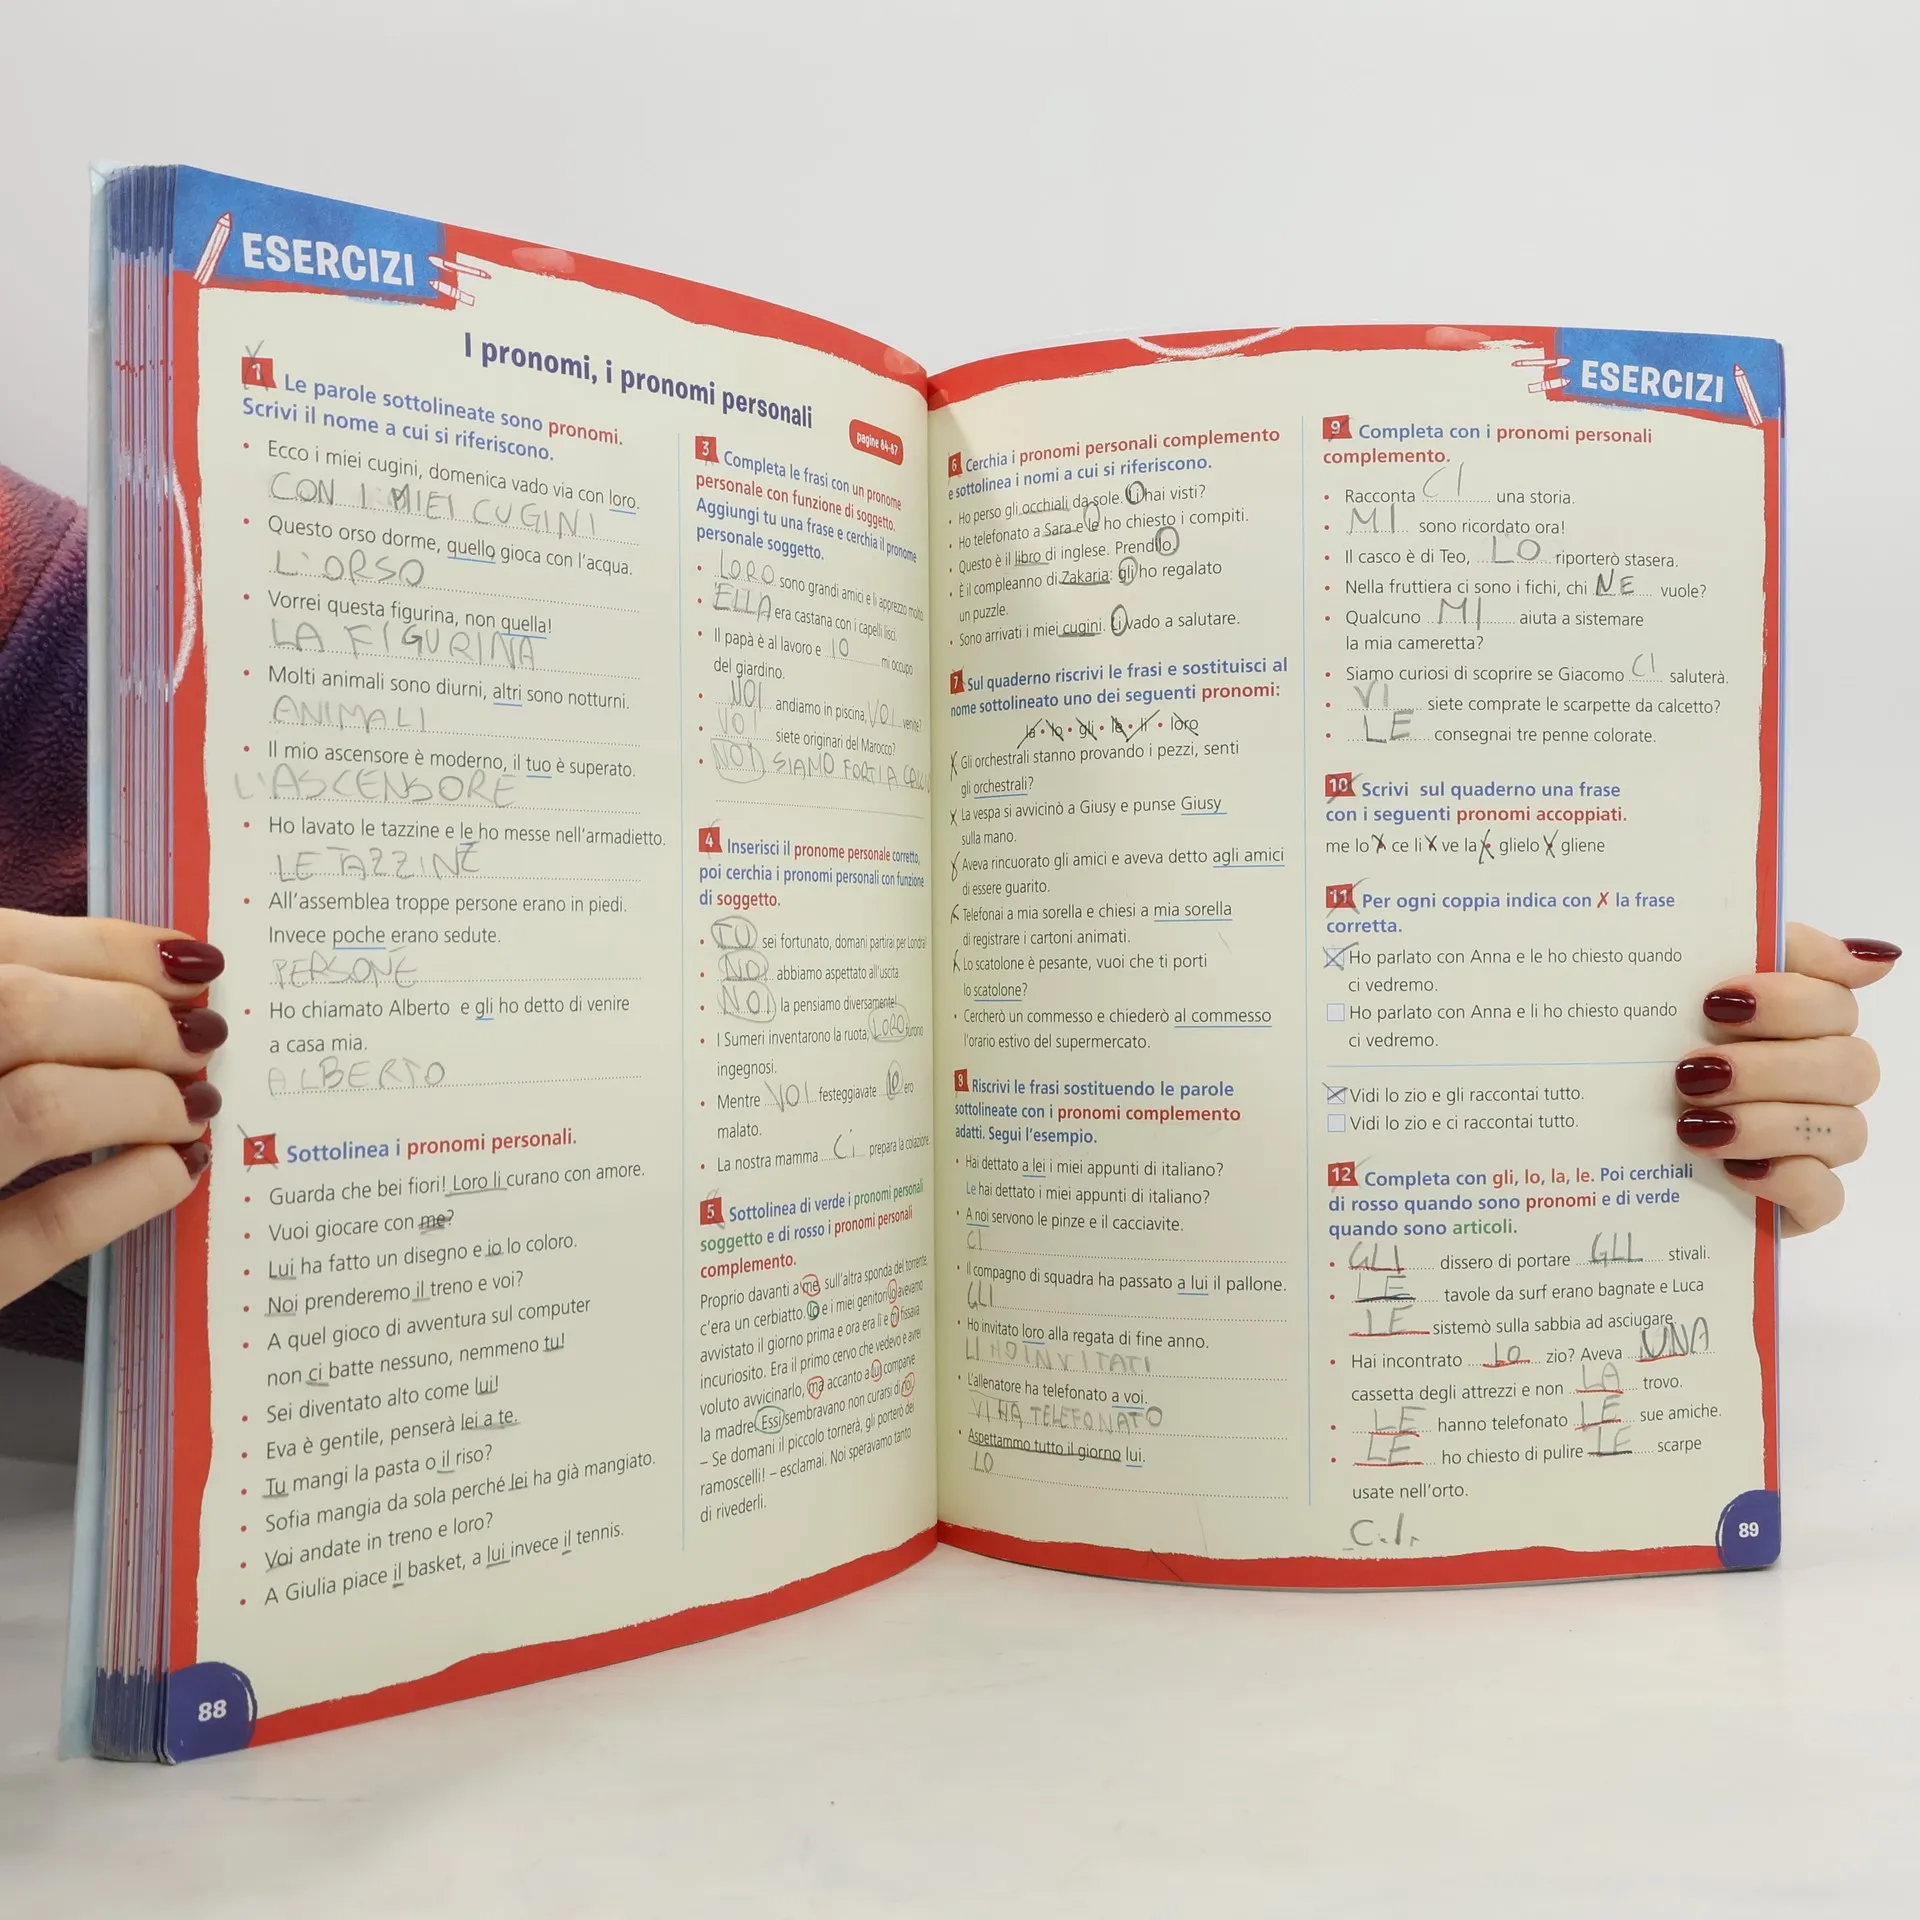 ESERCIZI
I pronomi, i pronomi personali
pagine 84-87
1 Le parole sottolineate sono pronomi.
Scrivi il nome a cui si riferiscono.
• Ecco i miei cugini, domenica vado via con loro.
CON I MIEI CUGINI
• Questo orso dorme, quello gioca con l'acqua.
L'ORSO
• Vorrei questa figurina, non quella!
LA FIGURINA
• Molti animali sono diurni, altri sono notturni.
ANIMALI
• Il mio ascensore è moderno, il tuo è superato.
L'ASCENSORE
• Ho lavato le tazzine e le ho messe nell'armadietto.
LE TAZZINE
• All'assemblea troppe persone erano in piedi.
Invece poche erano sedute.
PERSONE
• Ho chiamato Alberto e gli ho detto di venire
a casa mia.
ALBERTO
2 Sottolinea i pronomi personali.
• Guarda che bei fiori! Loro li curano con amore.
• Vuoi giocare con me?
• Lui ha fatto un disegno e io lo coloro.
• Noi prenderemo il treno e voi?
• A quel gioco di avventura sul computer
non ci batte nessuno, nemmeno tu!
• Sei diventato alto come lui!
• Eva è gentile, penserà lei a te.
• Tu mangi la pasta o il riso?
• Sofia mangia da sola perché lei ha già mangiato.
• Voi andate in treno e loro?
• A Giulia piace il basket, a lui invece il tennis.
88
3 Completa le frasi con un pronome
personale con funzione di soggetto.
Aggiungi tu una frase e cerchia il pronome
personale soggetto.
• LORO sono grandi amici e li apprezzo molto
• ELLA era castana con i capelli lisci.
• Il papà è al lavoro e IO mi occupo
del giardino.
• NOI andiamo in piscina, VOI venite?
• VOI siete originari del Marocco?
• NOI SIAMO FORTI A
4 Inserisci il pronome personale corretto,
poi cerchia i pronomi personali con funzione
di soggetto.
• TU sei fortunato, domani partirai per Londra!
• NOI abbiamo aspettato all'uscita
• NOI la pensiamo diversamente!
• I Sumeri inventarono la ruota, LORO furono
ingegnosi.
• Mentre VOI festeggiavate IO ero
malato.
• La nostra mamma Ci prepara la colazione
5 Sottolinea di verde i pronomi personali
soggetto e di rosso i pronomi personali
complemento.
Proprio davanti a me, sull'altra sponda del torrente,
c'era un cerbiatto. Io e i miei genitori lo avevamo
avvistato il giorno prima e ora era lì e ci fissava
incuriosito. Era il primo cervo che vedevo e avrei
voluto avvicinarlo, ma accanto a lui comparve
la madre. Essi sembravano non curarsi di noi.
– Se domani il piccolo tornerà, gli porterò dei
ramoscelli! – esclamai. Noi speravamo tanto
di rivederli.
ESERCIZI
6 Cerchia i pronomi personali complemento
e sottolinea i nomi a cui si riferiscono.
• Ho perso gli occhiali da sole. Li hai visti?
• Ho telefonato a Sara e le ho chiesto i compiti.
• Questo è il libro di inglese. Prendilo.
• È il compleanno di Zakaria: gli ho regalato
un puzzle.
• Sono arrivati i miei cugini. Li vado a salutare.
7 Sul quaderno riscrivi le frasi e sostituisci al
nome sottolineato uno dei seguenti pronomi:
la • lo • gli • le • li • loro
Gli orchestrali stanno provando i pezzi, senti
gli orchestrali?
La vespa si avvicinò a Giusy e punse Giusy
sulla mano.
Aveva rincuorato gli amici e aveva detto agli amici
di essere guarito.
Telefonai a mia sorella e chiesi a mia sorella
di registrare i cartoni animati.
Lo scatolone è pesante, vuoi che ti porti
lo scatolone?
• Cercherò un commesso e chiederò al commesso
l'orario estivo del supermercato.
8 Riscrivi le frasi sostituendo le parole
sottolineate con i pronomi complemento
adatti. Segui l'esempio.
• Hai dettato a lei i miei appunti di italiano?
Le hai dettato i miei appunti di italiano?
• A noi servono le pinze e il cacciavite.
CI
• Il compagno di squadra ha passato a lui il pallone.
GLI
• Ho invitato loro alla regata di fine anno.
LI HO INVITATI
• L'allenatore ha telefonato a voi.
VI HA TELEFONATO
• Aspettammo tutto il giorno lui.
LO
9 Completa con i pronomi personali
complemento.
• Racconta CI una storia.
• MI sono ricordato ora!
• Il casco è di Teo, LO riporterò stasera.
• Nella fruttiera ci sono i fichi, chi NE vuole?
• Qualcuno MI aiuta a sistemare
la mia cameretta?
• Siamo curiosi di scoprire se Giacomo CI saluterà.
• VI siete comprate le scarpette da calcetto?
• LE consegnai tre penne colorate.
10 Scrivi sul quaderno una frase
con i seguenti pronomi accoppiati.
me lo • ce li • ve la • glielo • gliene
11 Per ogni coppia indica con ✗ la frase
corretta.
Ho parlato con Anna e le ho chiesto quando
ci vedremo.
Ho parlato con Anna e li ho chiesto quando
ci vedremo.
Vidi lo zio e gli raccontai tutto.
Vidi lo zio e ci raccontai tutto.
12 Completa con gli, lo, la, le. Poi cerchiali
di rosso quando sono pronomi e di verde
quando sono articoli.
• GLI dissero di portare GLI stivali.
• LE tavole da surf erano bagnate e Luca
LE sistemò sulla sabbia ad asciugare.
• Hai incontrato LO zio? Aveva UNA
cassetta degli attrezzi e non LA trovo.
• LE hanno telefonato LE sue amiche.
• LE ho chiesto di pulire LE scarpe
usate nell'orto.
89